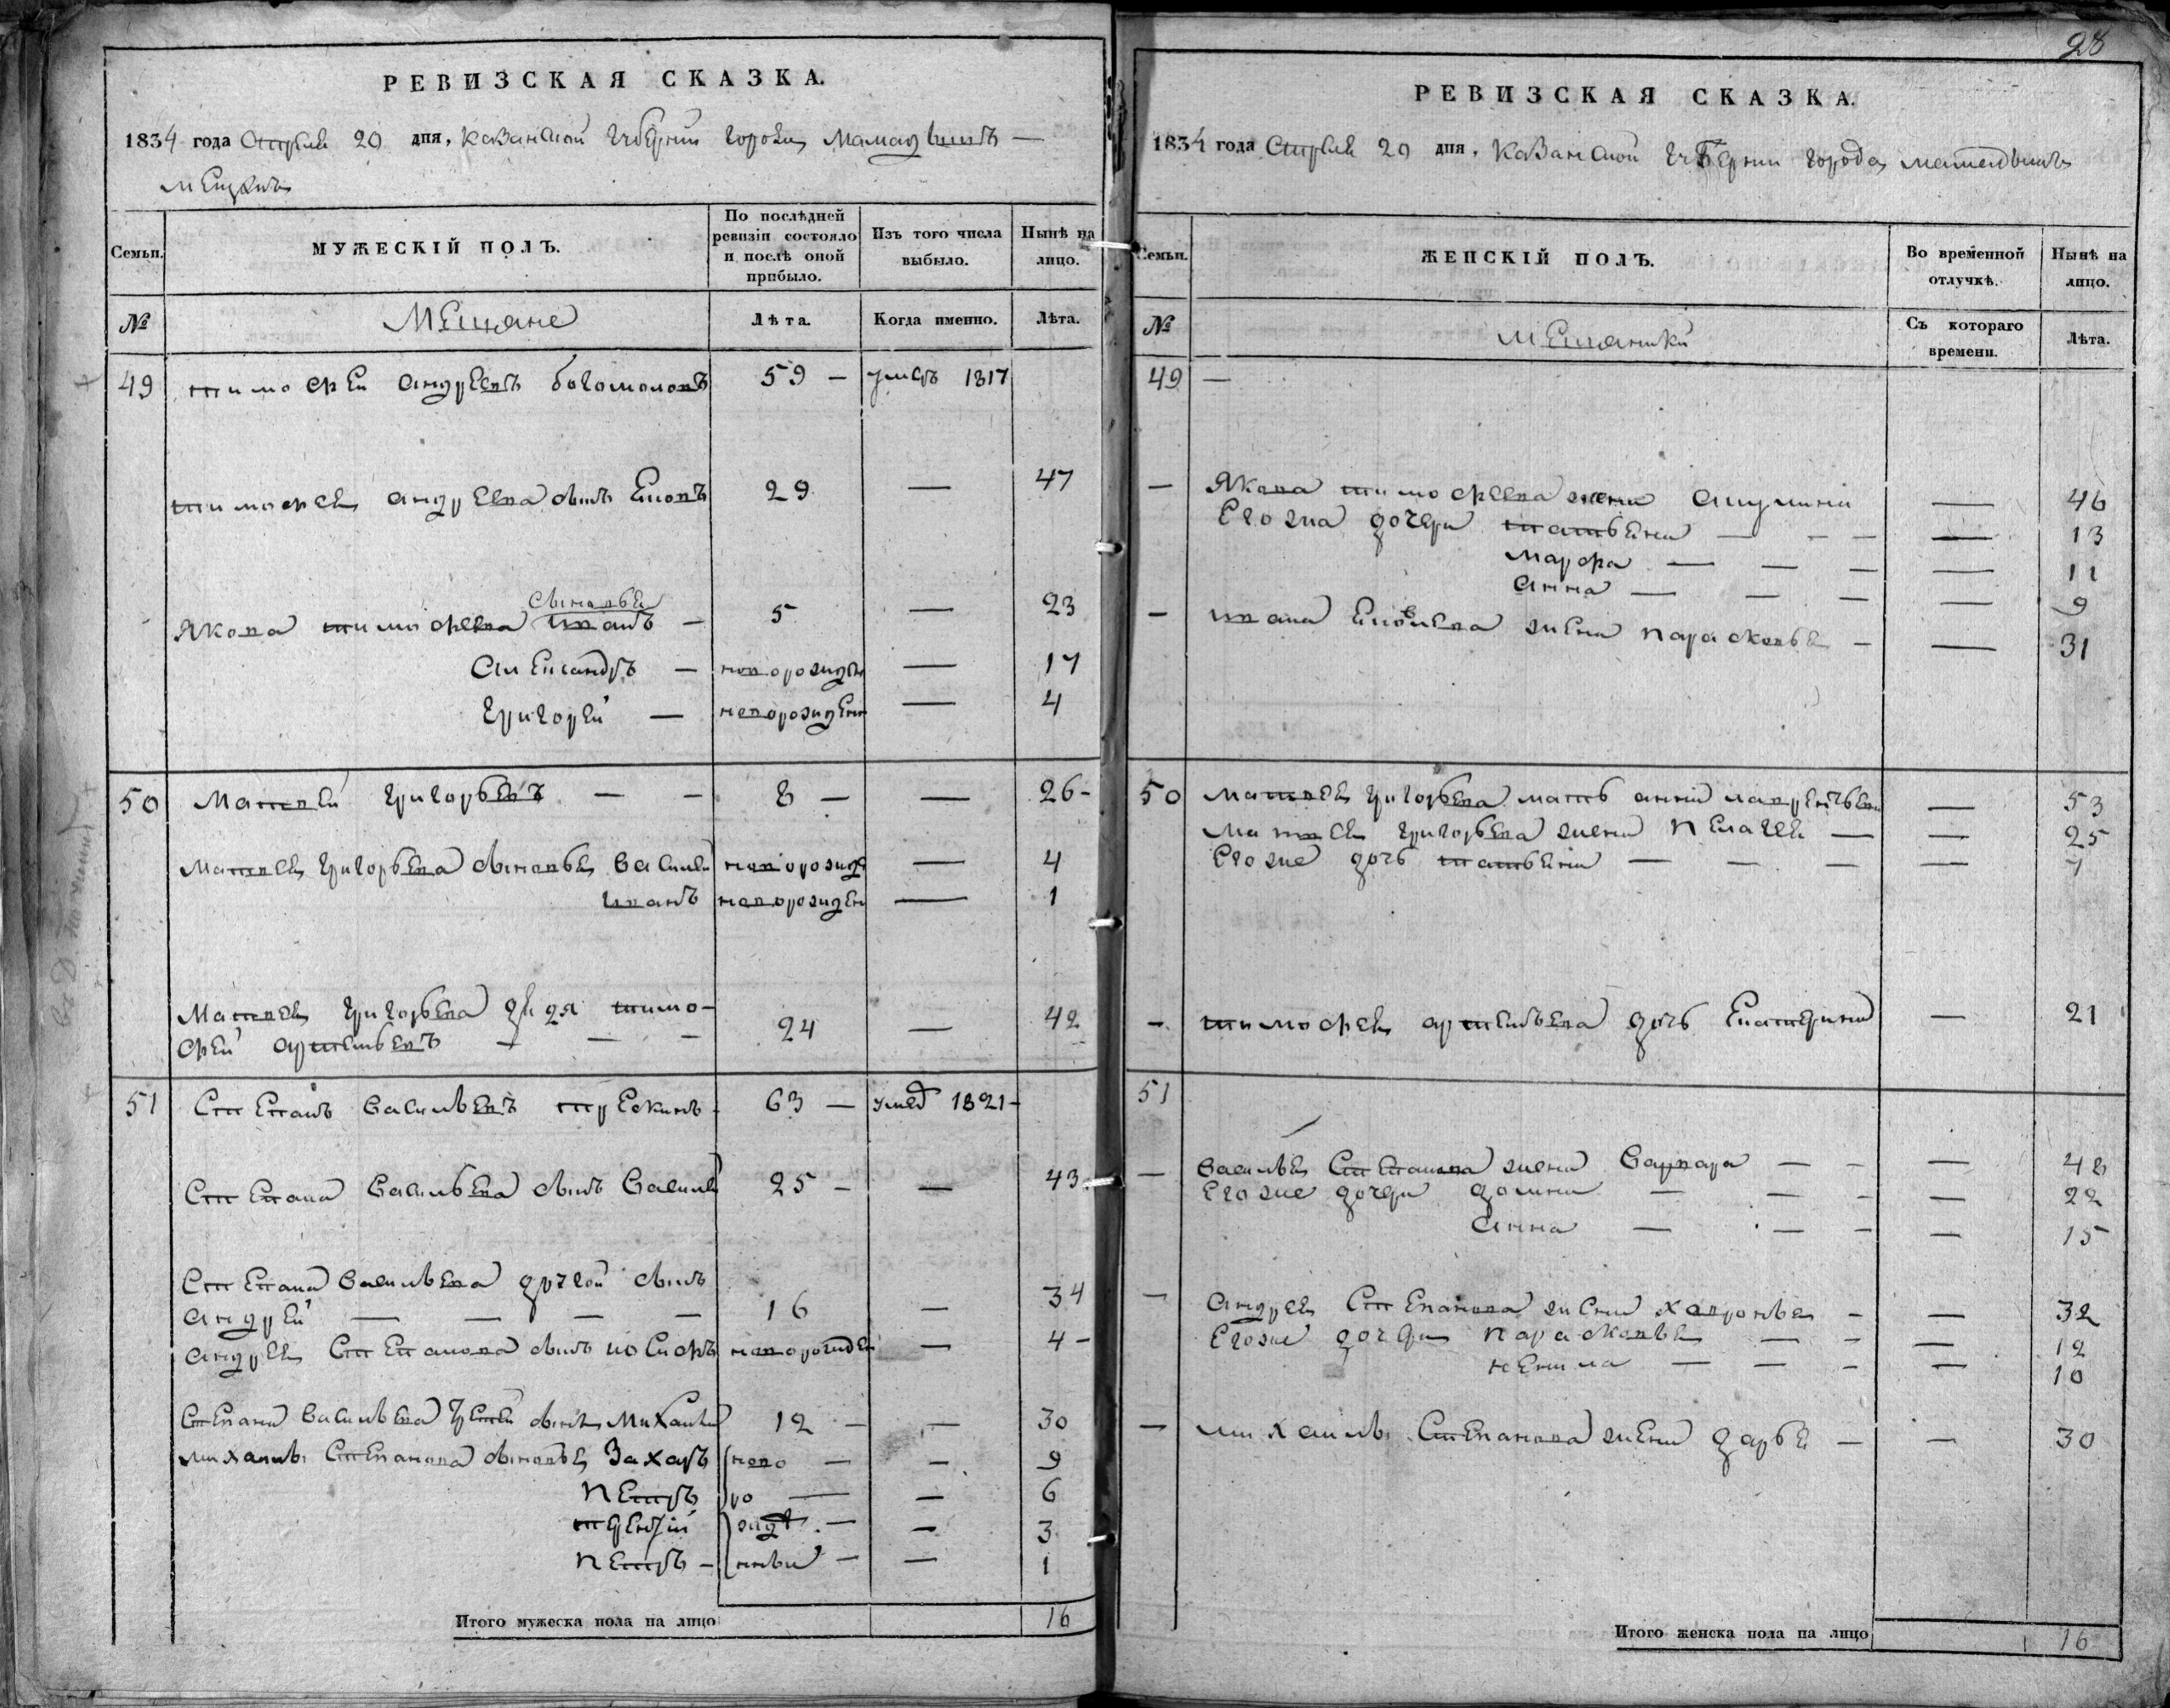 РЕВИЗСКАЯ СКАЗКА.
1834 года Апреля 20 дня, Казанской Губернии города Мамадышъ —
Мещанъ
Семьи.
МУЖЕСКІЙ ПОЛЪ.
По послѣдней ревизіи состояло и послѣ оной прибыло.
Изъ того числа выбыло.
Нынѣ на лицо.
№
Мещане
Лѣта.
Когда именно.
Лѣта.
49 тимофей андреевъ богомоловъ 59 — умеръ 1817
тимофея андреева сынъ Яковъ 29 — 47
сыновья
Якова тимофеева иванъ — 5 — 23
Александръ — новорожден — 17
григорей — новорожден — 4
50 Матвей григорьевъ — — 8 — — 26 -
Матвея григорьева сыновья василей новорожде — 4
иванъ новорожден — 1
Матвея григорьева дядя тимо-
фей артемьевъ — — — 24 — 42
51 Степанъ васильевъ трескинъ - 63 — умеръ 1821 -
Степана васильева сынъ василей 25 - — 43
Степана васильева другой сынъ
андрей — — — — 16 — 34
андрея Степанова сынъ иосифъ новорожден — 4 -
Степана васильева третей сынъ Михаила 12 — — 30
михаила Степанова сыновья Захаръ ново — — 9
петръ ро — — 6
терентий жде — — 3
петръ - нныи — — 1
Итого мужеска пола на лицо 16
28
РЕВИЗСКАЯ СКАЗКА.
1834 года Апреля 20 дня, Казанской Губернии города мамадышъ
Семьи.
ЖЕНСКІЙ ПОЛЪ.
Во временной отлучкѣ.
Нынѣ на лицо.
№
мещанки
Съ котораго времени.
Лѣта.
49 —
— Якова тимофеева жена акулина — 46
Егожа дочери татьяна — — — — 13
марфа — — — — 11
анна — — — — 9
— ивана Яковлева жена парасковья — — 31
50 матвея григорьева мать анна лаврентьева — 53
матвея григорьева жена пелагея — — 25
Егоже дочь татьяна — — — — 7
- тимофея артемьева дочь Екатерина — 21
51
— василья Степанова жена варвара — - — 48
Егоже дочери домна — — - — 22
анна — — - — 15
— андрея Степанова жена хавронья - — 32
Егоже дочери парасковья — - — 12
ненила — — - — 10
— михаила Степанова жена дарья — — 30
Итого женска пола на лицо 16